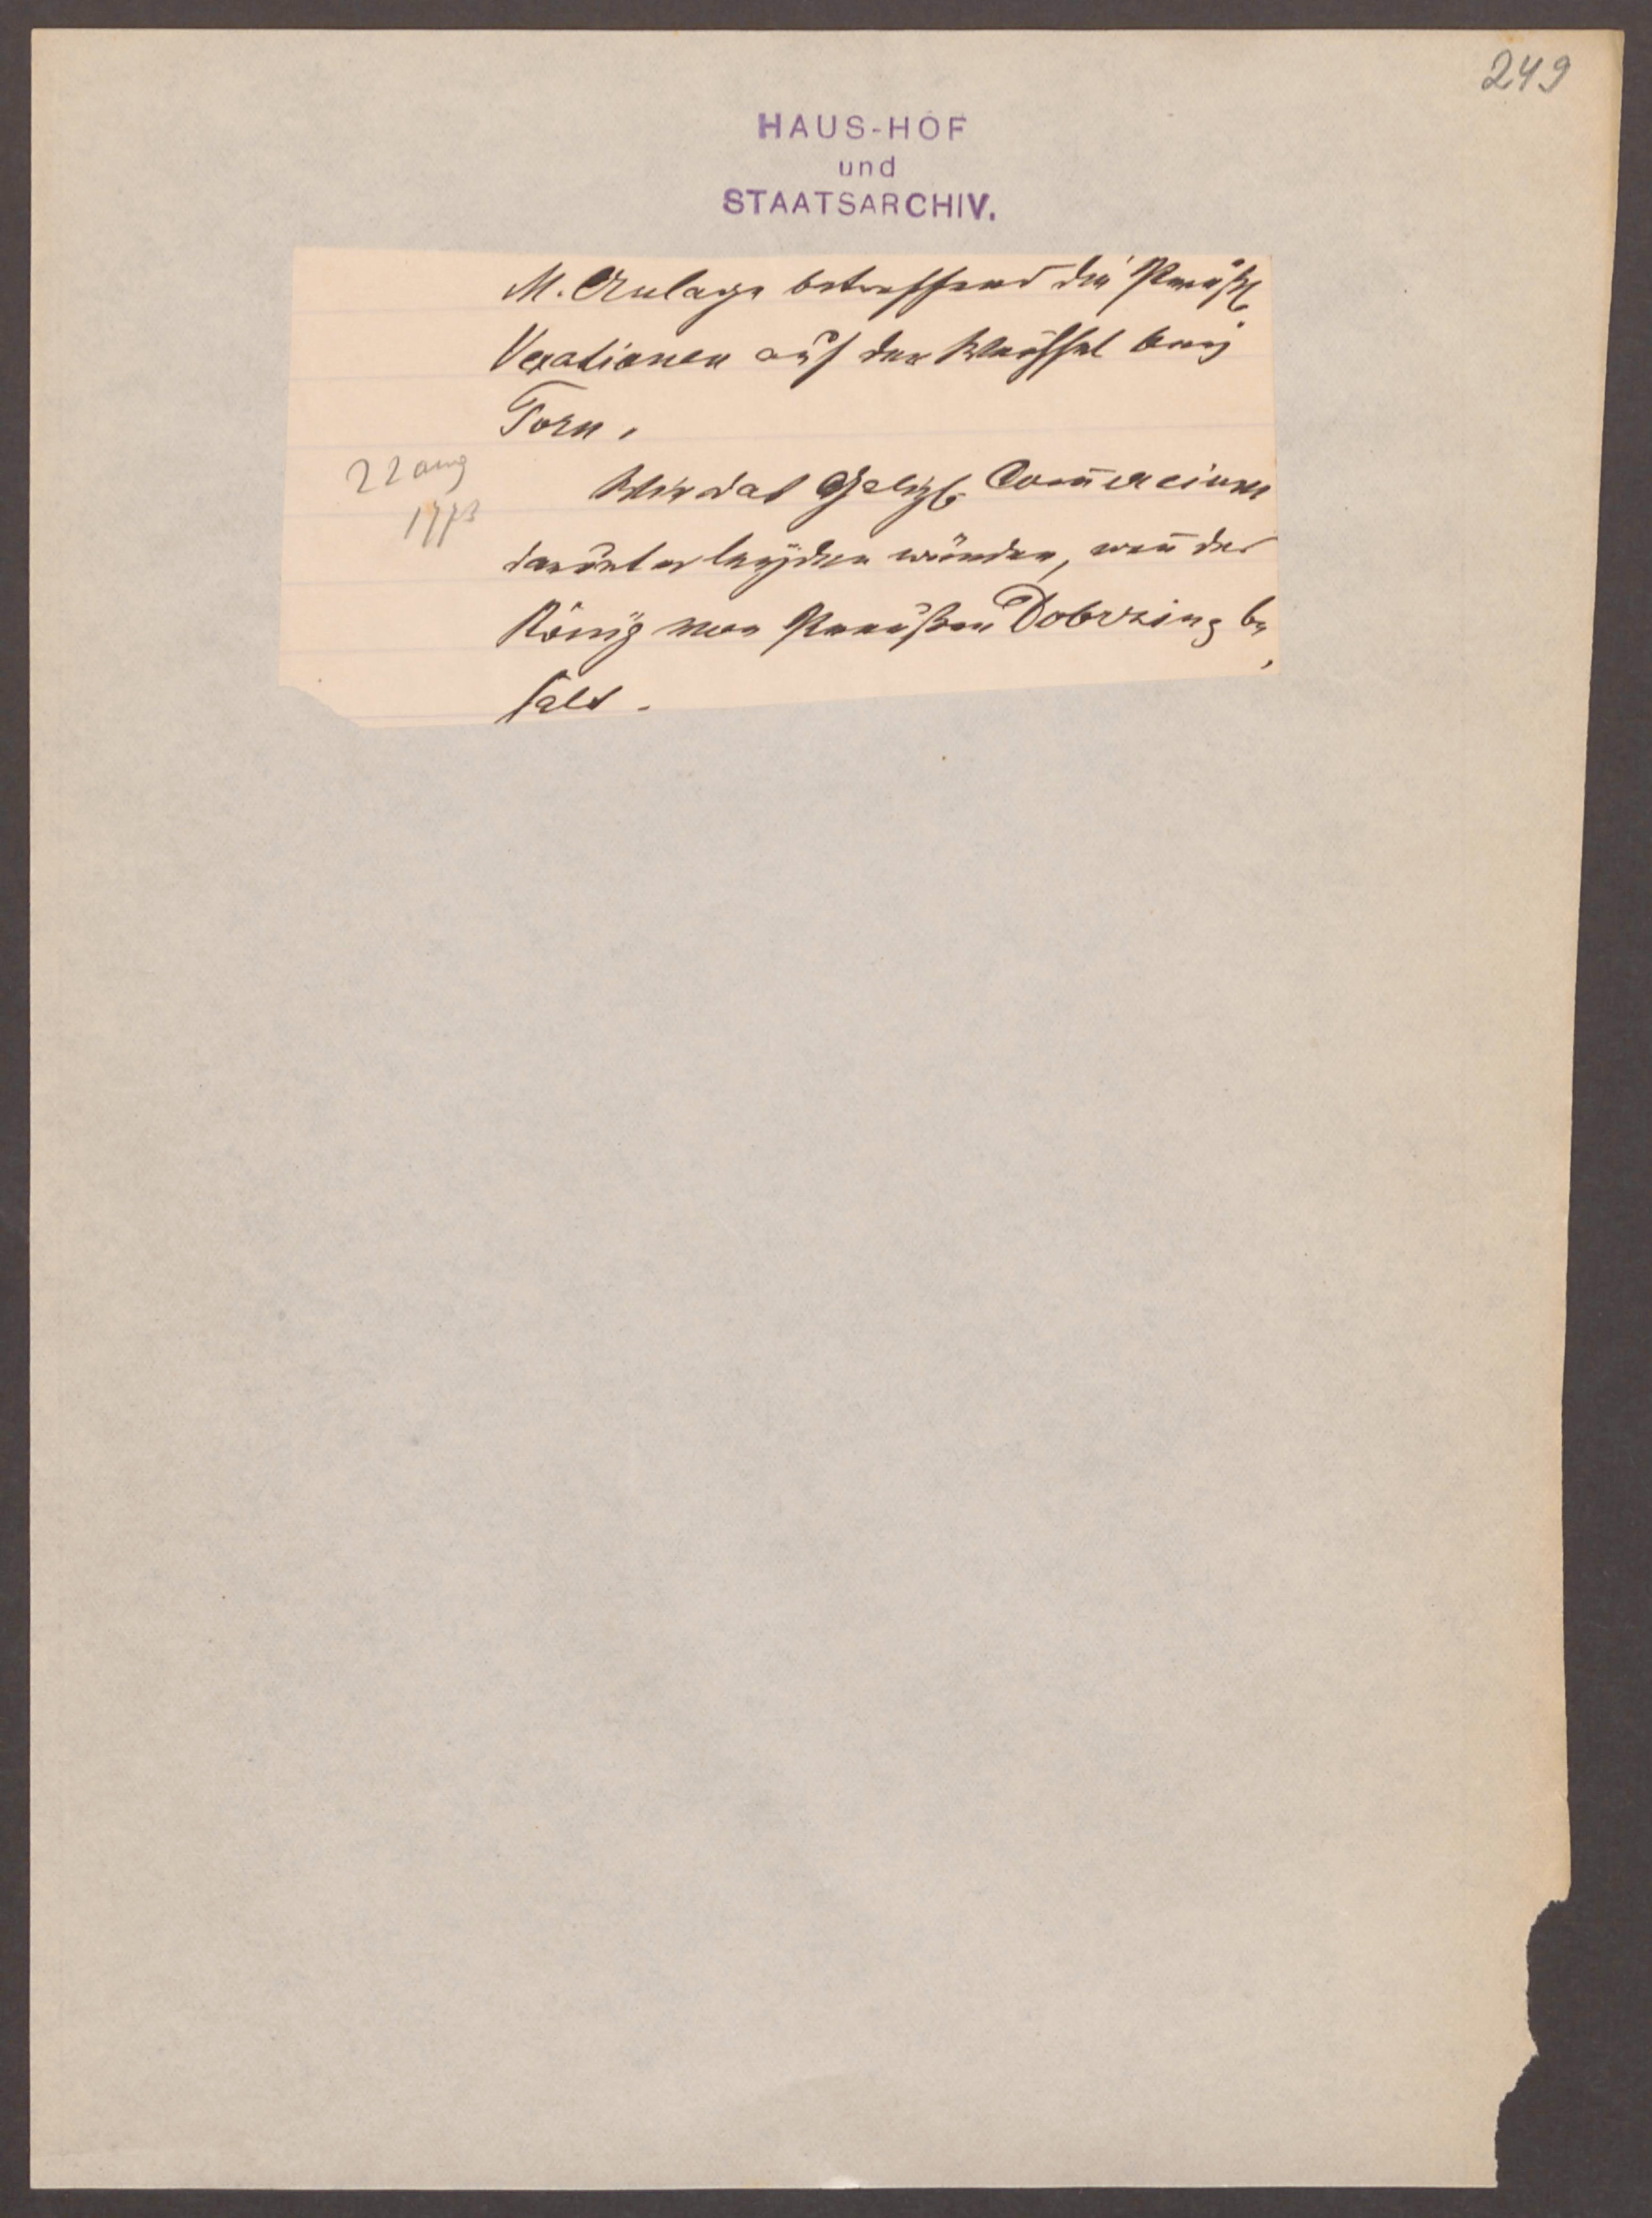 249
HAUS-HOF
und
STAATSARCHIV.
M. Anlage betreffend die Preüßl
Vexationen auf der Weichsel beÿ
Torn.
22 aug
1773
Wie das Galiz. Com̅ercium
darunter leÿden würden, wen̅ der
König von Preüßen Dobrzin be
hält.